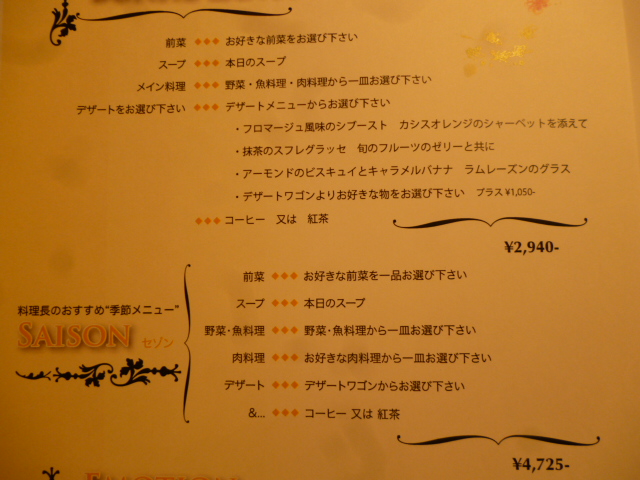 前菜 ◆◆◆ お好きな前菜をお選び下さい
スープ ◆◆◆ 本日のスープ
メイン料理 ◆◆◆ 野菜・魚料理・肉料理から一皿お選び下さい
デザートをお選び下さい ◆◆◆ デザートメニューからお選び下さい
・フロマージュ風味のシブースト　カシスオレンジのシャーベットを添えて
・抹茶のスフレグラッセ　旬のフルーツのゼリーと共に
・アーモンドのビスキュイとキャラメルバナナ　ラムレーズンのグラス
・デザートワゴンよりお好きな物をお選び下さい　プラス ¥1,050-
◆◆◆ コーヒー　又は　紅茶
¥2,940-
料理長のおすすめ"季節メニュー"
SAISON セゾン
前菜 ◆◆◆ お好きな前菜を一品お選び下さい
スープ ◆◆◆ 本日のスープ
野菜・魚料理 ◆◆◆ 野菜・魚料理から一皿お選び下さい
肉料理 ◆◆◆ お好きな肉料理から一皿お選び下さい
デザート ◆◆◆ デザートワゴンからお選び下さい
&... ◆◆◆ コーヒー 又は 紅茶
¥4,725-